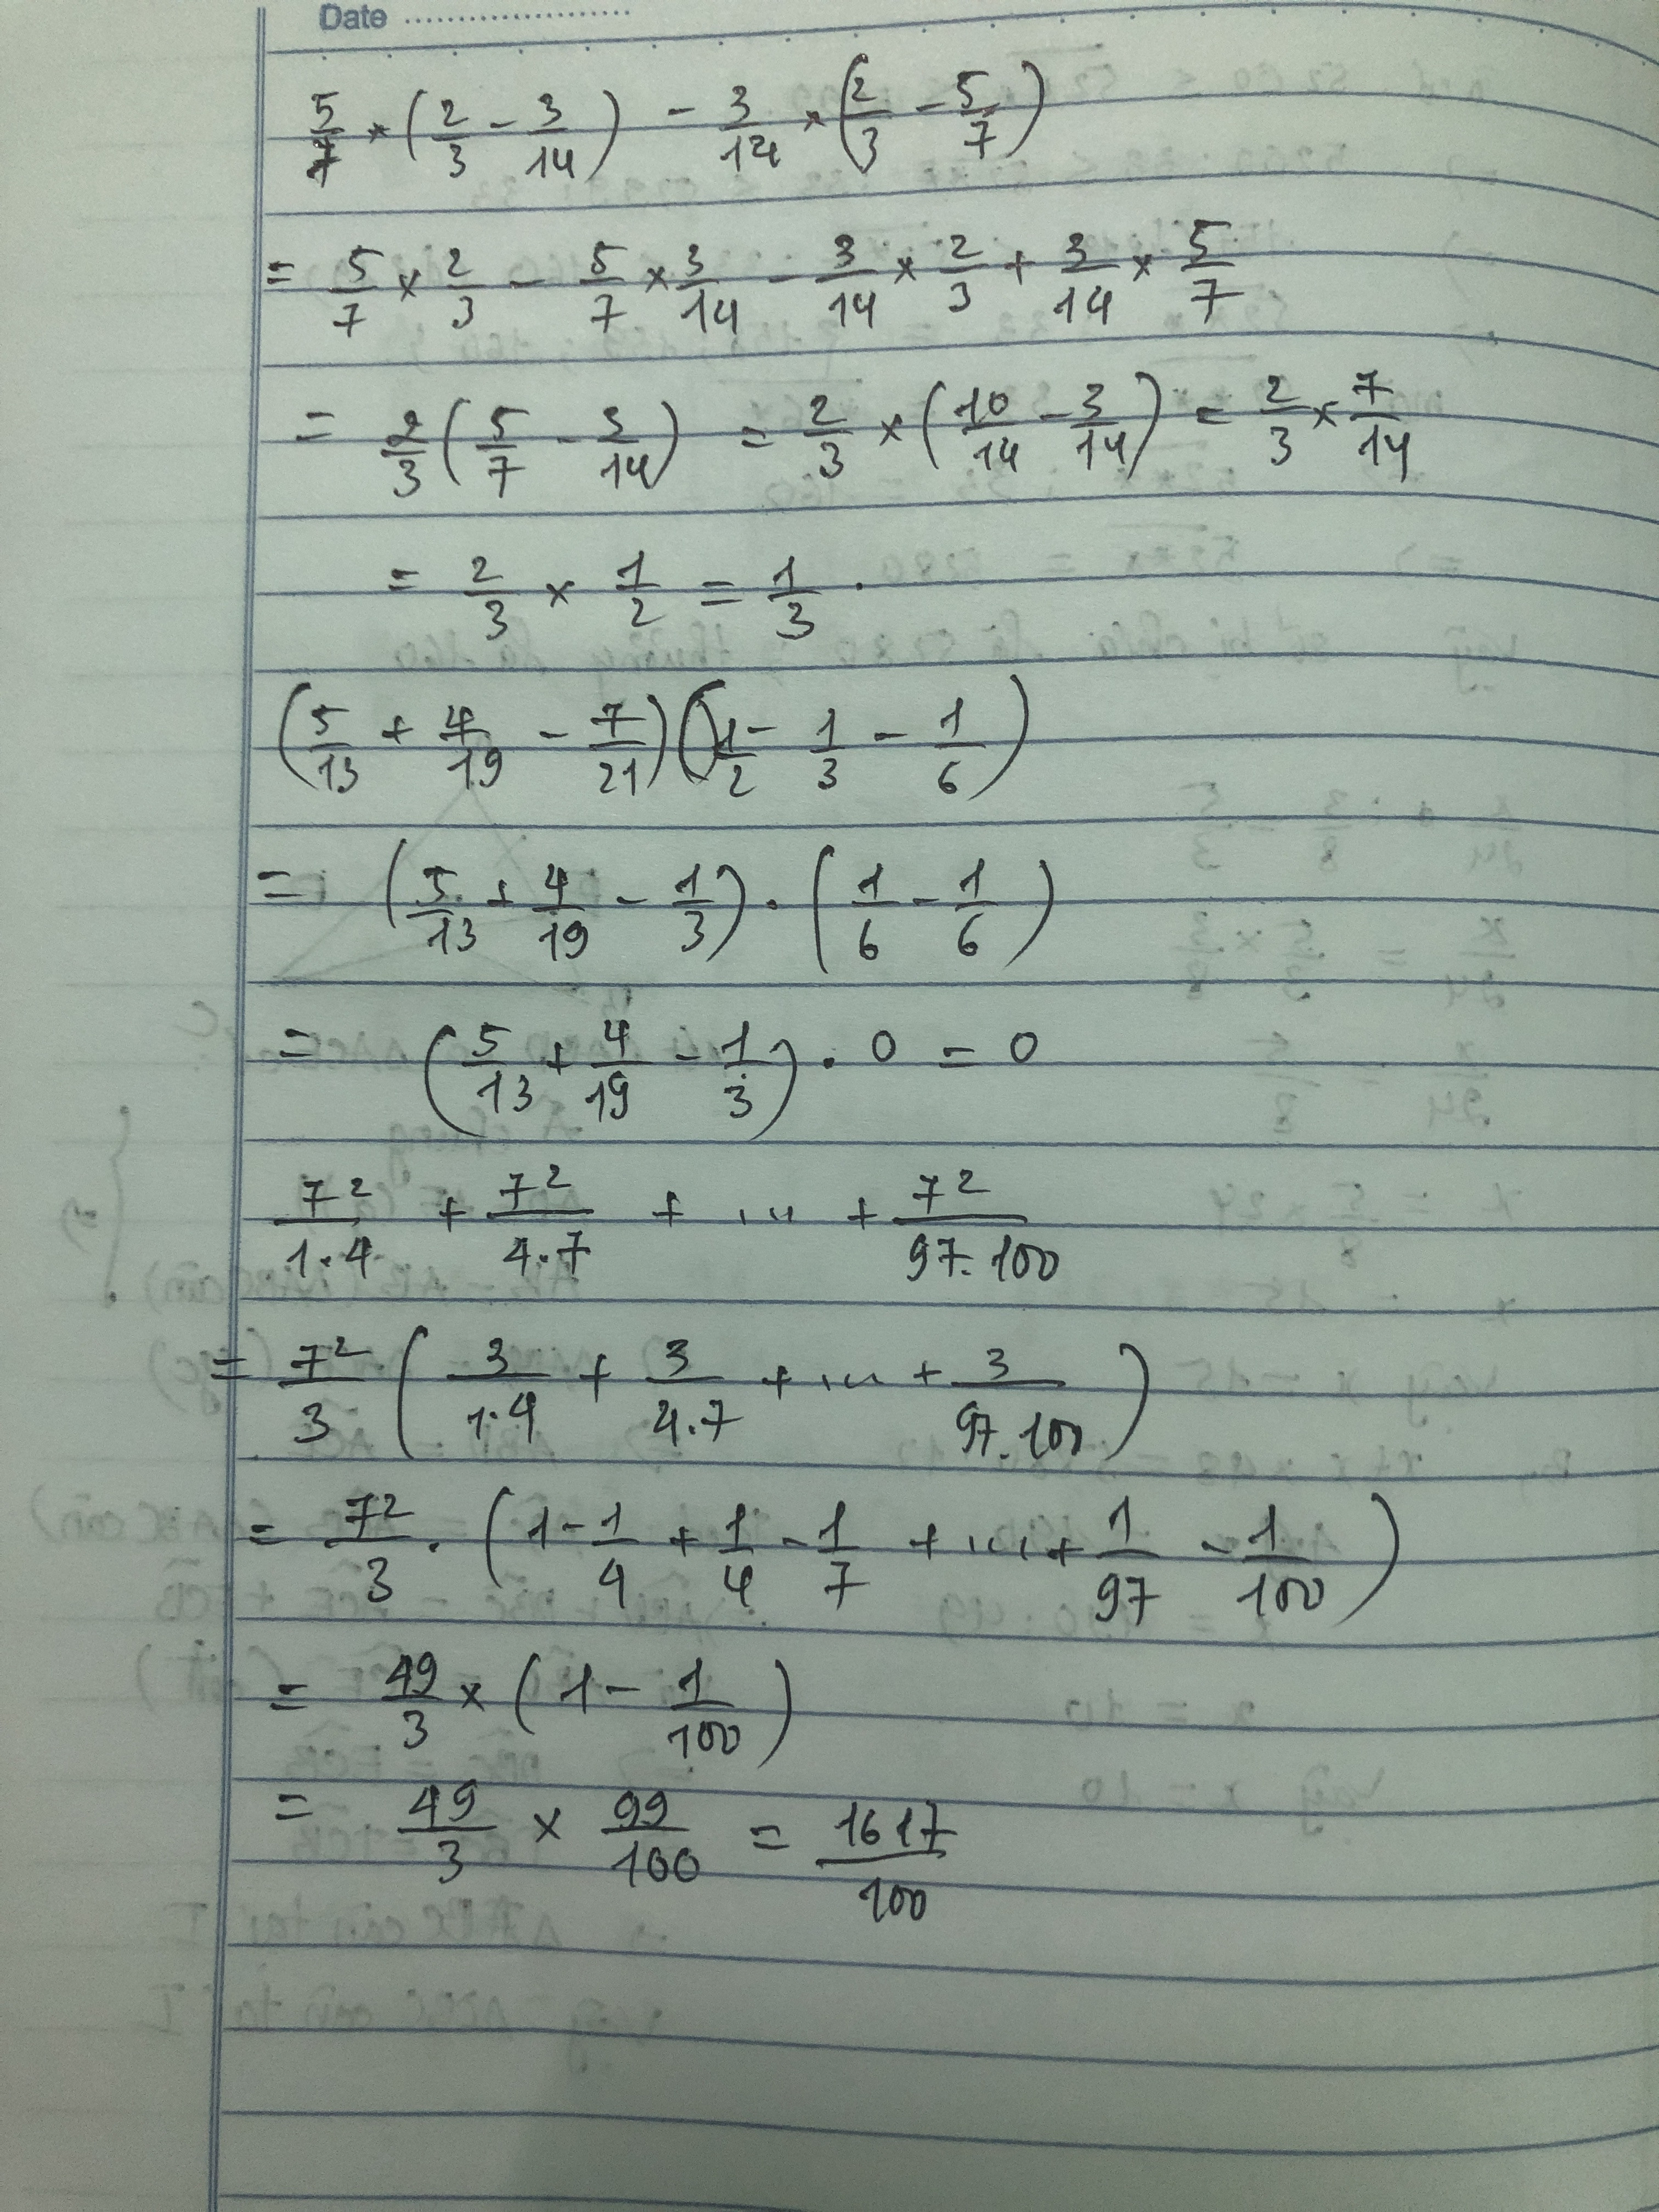 Date ....................
5/7 × (2/3 - 3/14) - 3/14 × (2/3 - 5/7)
= 5/7 × 2/3 - 5/7 × 3/14 - 3/14 × 2/3 + 3/14 × 5/7
= 2/3 (5/7 - 3/14) = 2/3 × (10/14 - 3/14) = 2/3 × 7/14
= 2/3 × 1/2 = 1/3 .
(5/13 + 4/19 - 7/21) (1/2 - 1/3 - 1/6)
= (5/13 + 4/19 - 1/3) . (1/6 - 1/6)
= (5/13 + 4/19 - 1/3) . 0 = 0
7²/1.4 + 7²/4.7 + ... + 7²/97.100
= 7²/3 (3/1.4 + 3/4.7 + ... + 3/97.100)
= 7²/3 . (1 - 1/4 + 1/4 - 1/7 + ... + 1/97 - 1/100)
= 49/3 × (1 - 1/100)
= 49/3 × 99/100 = 1617/100